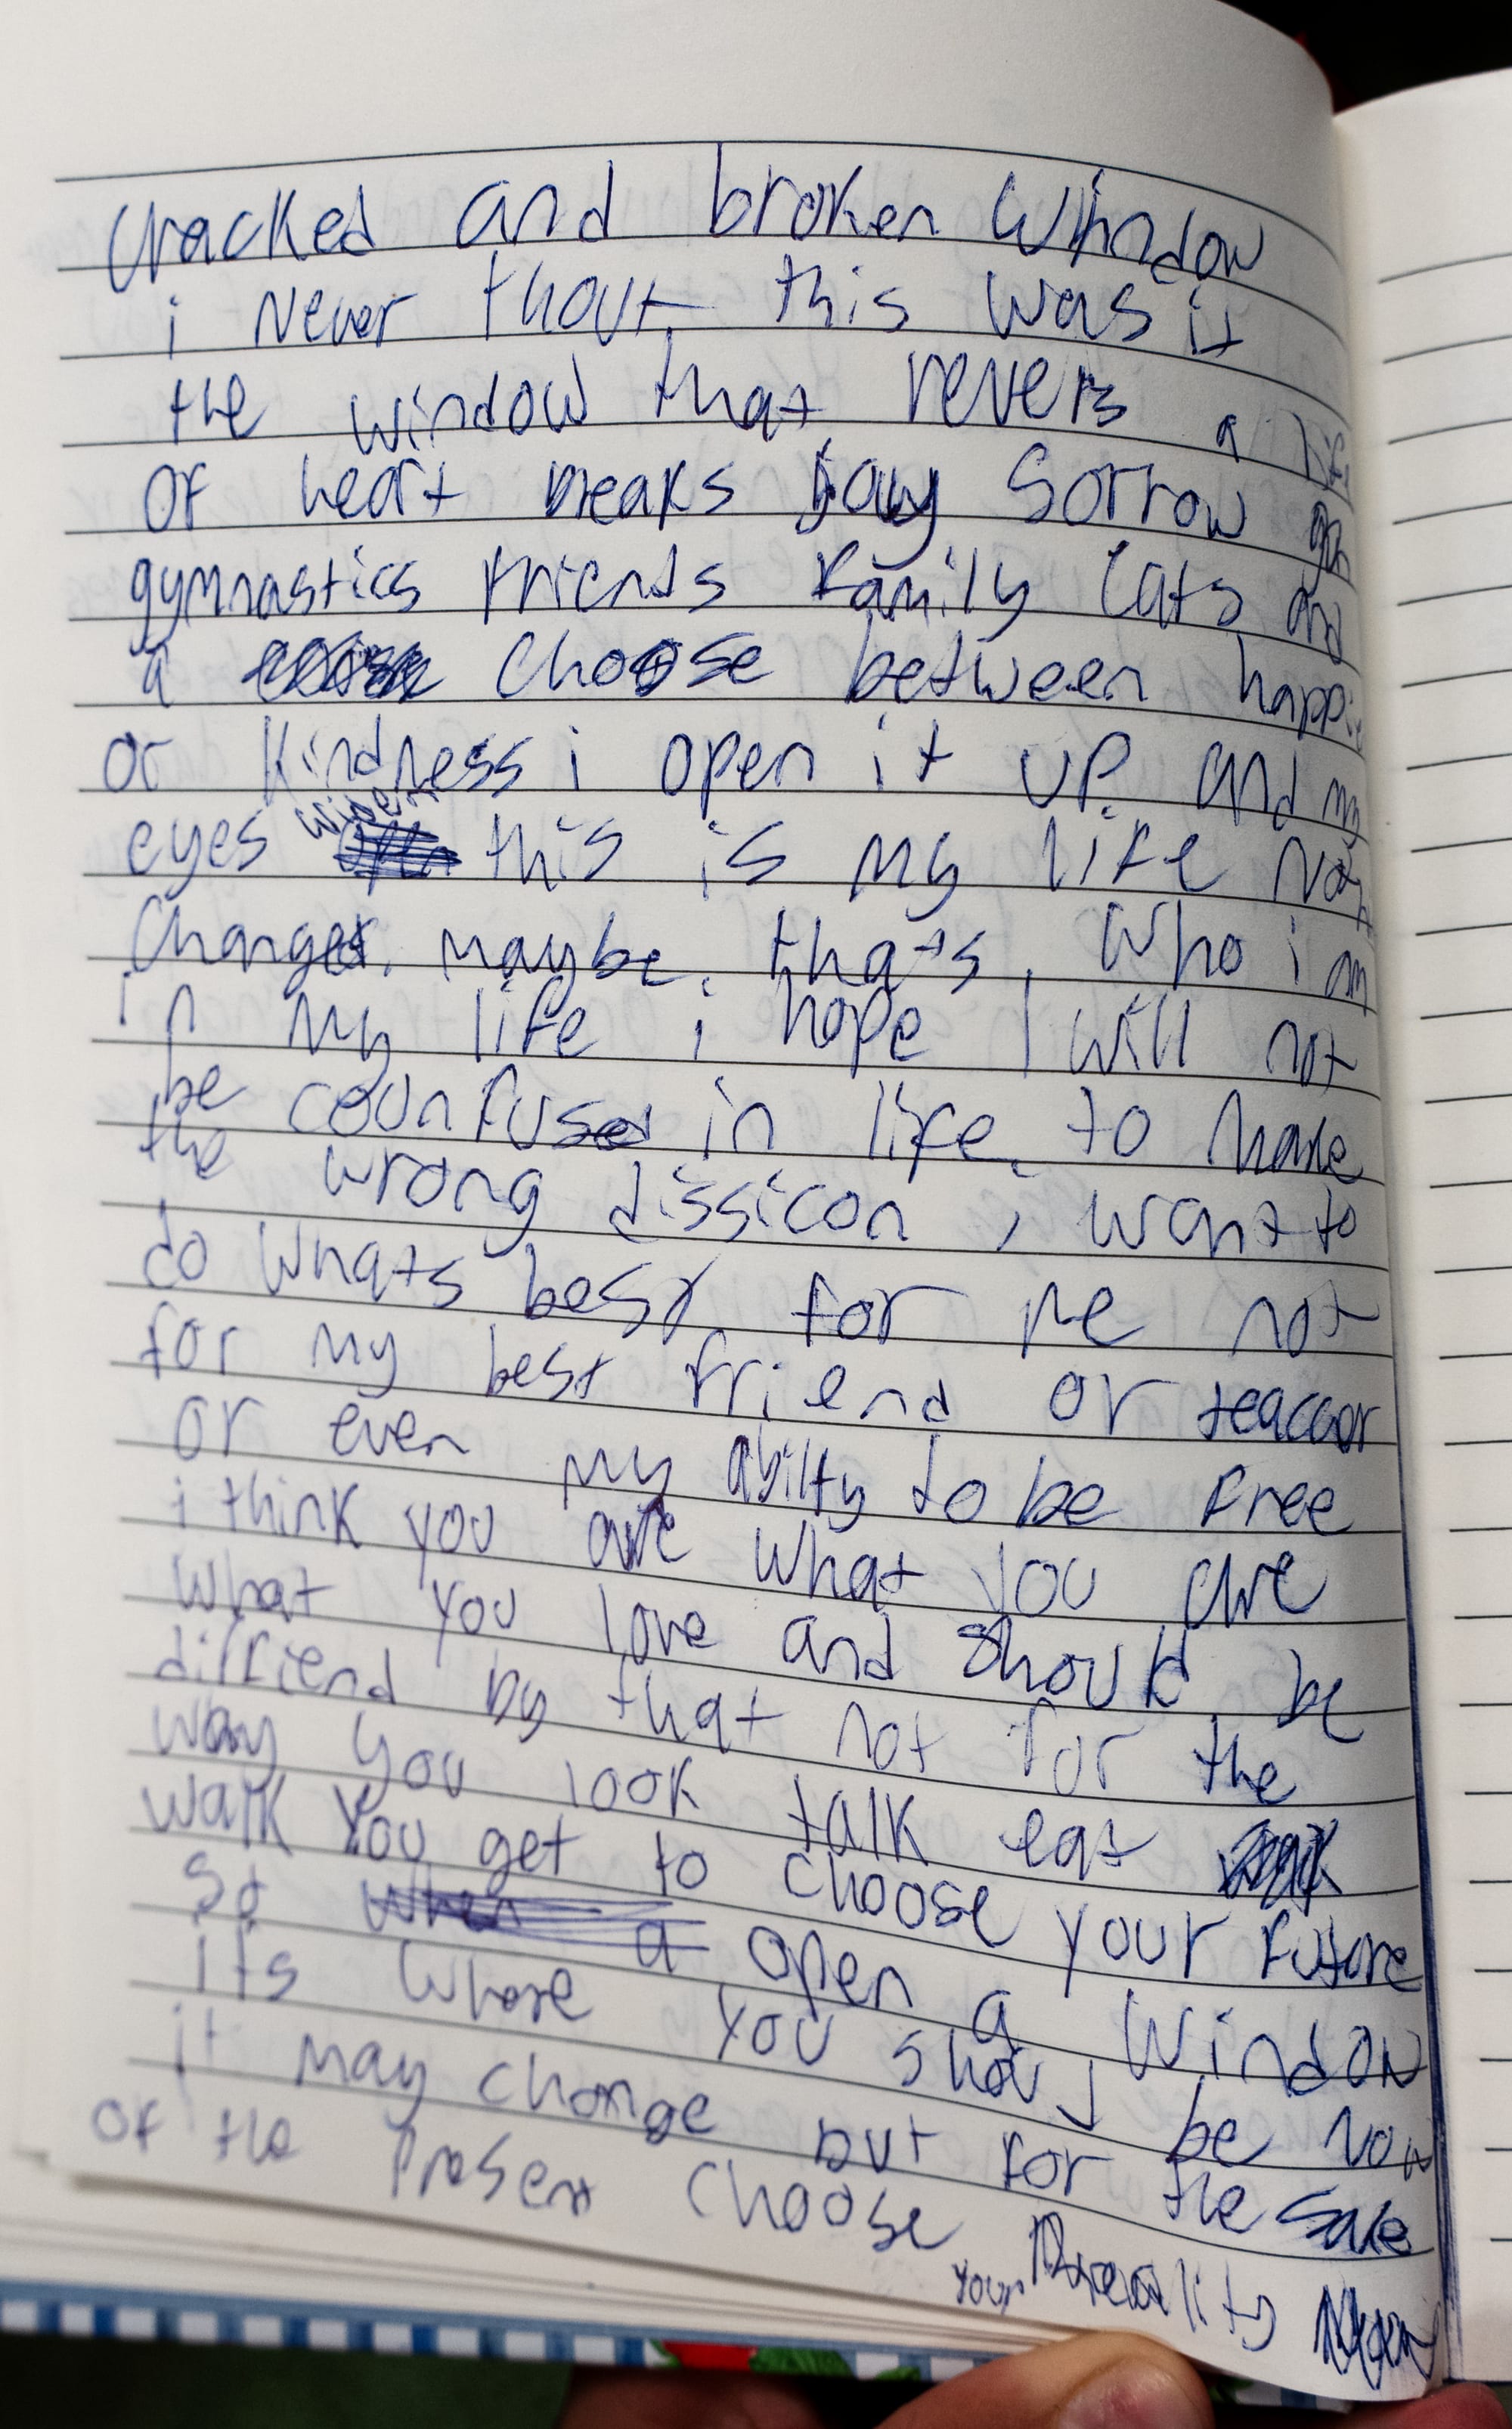 Cracked and broken Window
i Never thout this was it
the window that revers a life
of heart breaks joy Sorrow
gymnastics friends family Cats and
a choose between happi
or Kindness i open it up and my
eyes widen this is my life Not
Changer. maybe. thats. Who i am
in my life i hope I will not
be counfused in life. to make
the wrong dissicon i want to
do whats best for me not
for my best friend or teaccor
or even my abilty to be free
i think you are what you are
what you love and should be
diffriend by that not for the
way you look talk eat
walk You get to choose your future
So open a Window
its where you should be now
it may change but for the sake
of the Present choose your reality